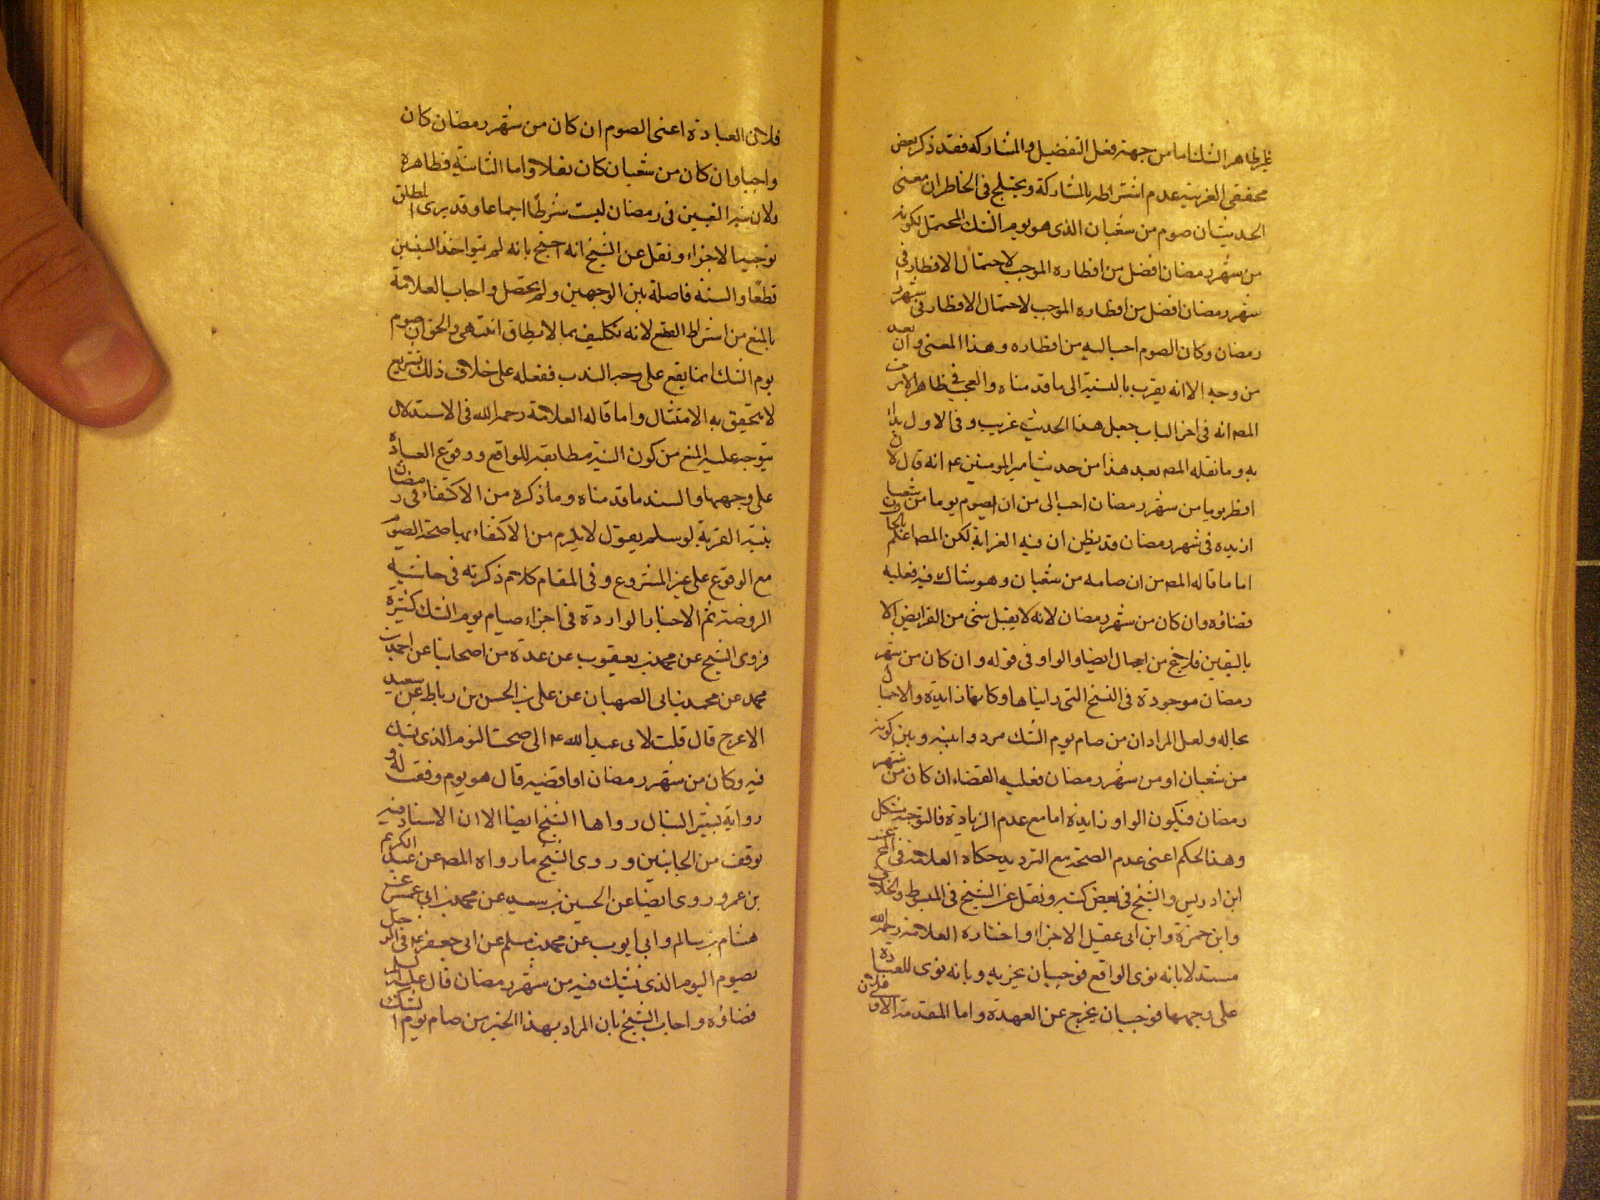 ظاهر الشك اما من جهة فعل التفضيل والمشاركة فقد ذكر بعض
محققى العربية عدم اشتراطه بالمشاركة ويختلج فى الخاطر ان معنى
الحديث ان صوم من شعبان الذى هو يوم الشك المحتمل لكونه
من شهر رمضان افضل من افطاره الموجب لاحتمال الافطار فى
شهر رمضان افضل من افطاره الموجب لاحتمال الافطار فى شهر
رمضان وكان الصوم احب اليه من افطاره وهذا المعنى وان بعد
من وجه الا انه يقرب بالنسبة الى ما قدمناه والعجب فى ظاهر الامر من
المص انه فى اخر الباب جعل هذا الحديث غريب وفى الاول
به وما نقله المص بعد هذا من حديث امير المومنين ع انه قال لان
افطر يوما من شهر رمضان احب الى من ان اصوم يوما من شعبان
ازيده فى شهر رمضان قد يظن ان فيه الغرابة لكن المص اعلم بالحال
اما ما قاله المص من ان صامه من شعبان وهو شاك فيه فعليه
قضاؤه وان كان من شهر رمضان لانه لا يقبل شئ من الفرايض الا
باليقين فلا يخ من اجمال ايضا والواو فى قوله وان كان من شهر
رمضان موجودة فى النسخ التى رايناها وكانها زايدة والاجمال
بحاله ولعل المراد ان من صام يوم الشك مرددا بينه وبين كونه
من شعبان او من شهر رمضان فعليه القضاء ان كان من شهر
رمضان فيكون الواو زايدة اما مع عدم الزيادة فالتوجيه مشكل
وهذا الحكم اعنى عدم الصحة مع الترديد حكاه العلامة فى المخ عن
ابن ادريس والشيخ فى بعض كتبه ونقل عن الشيخ فى المبسوط والخلاف
وابن حمزة وابن ابى عقيل الاجزاء واختاره العلامة رحمه الله
مستدلا بانه نوى الواقع فوجب ان يجزيه وبانه نوى للعبادة
على وجهها فوجب ان يخرج عن العهدة واما المقدمة الاولى فلان
فلان العبادة اعنى الصوم ان كان من شهر رمضان كان
واجبا وان كان من شعبان كان نفلا واما الثانية فظاهرة
ولان نية التعيين فى رمضان ليست شرطا اجماعا وقد يرى المطلق
توجيها لاجزاء ونقل عن الشيخ انه احتج بانه لم ينو احد السببين
قطعا والنية فاصلة بين الوجهين ولم يحصل واجاب العلامة
بالمنع من اشتراط القطع لانه تكليف بما لا يطاق انتهى والحق ان صوم
يوم الشك انما يقع على وجه الندب ففعله على خلاف ذلك تشريع
لا يتحقق به الامتثال واما قاله العلامة رحمه الله فى الاستدلال
يتوجه عليه المنع من كون النية مطابقة للواقع ووقوع العبادة
على وجهها والسند ما قدمناه وما ذكره من الاكتفاء فى رمضان
بنية القربة لو سلم يقول لا يلزم من الاكتفاء بها صحة الصوم
مع الوقوع على غير المشروع وفى المقام كلام ذكرته فى حاشية
الروضة ثم الاخبار الواردة فى اجزاء صيام يوم الشك كثيرة
فروى الشيخ عن محمد بن يعقوب عن عدة من اصحابنا عن احمد بن
محمد عن محمد بن ابى الصهبان عن على بن الحسن بن رباط عن سعيد
الاعرج قال قلت لابى عبد الله ع انى صمت اليوم الذى يشك
فيه وكان من شهر رمضان اواقضيه قال هو يوم وفقت له و
رواية بشير النبال رواها الشيخ ايضا الا ان الاسناد فيه
توقف من الجانبين وروى الشيخ ما رواه المص عن عبد الكريم
بن عمرو وروى ايضا عن الحسين بن سعيد عن محمد بن ابى عمير عن
هشام بن سالم وابى ايوب عن محمد بن مسلم عن ابى جعفر ع فى الرجل
يصوم اليوم الذى يشك فيه من شهر رمضان قال عليه السلم
قضاؤه واجاب الشيخ بان المراد بهذا الخبر من صام يوم الشك